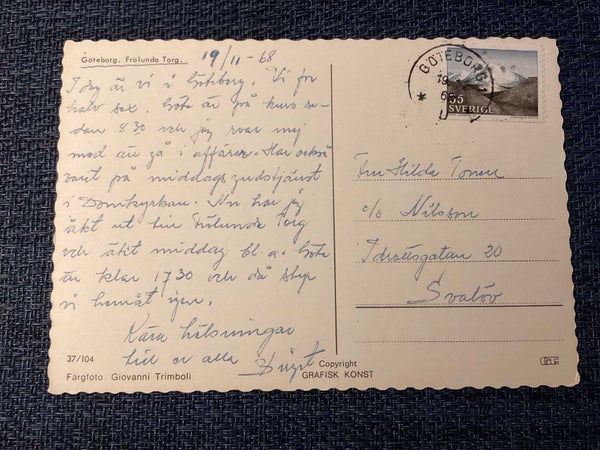 Göteborg. Frölunda Torg.
19/11-68
Idag är vi i Göteborg. Vi for
halv sex. Gösta är på kurs se-
dan 8.30 och jag roar mej
med att gå i affärer. Har också
varit på middagsgudstjänst
i Domkyrkan. Nu har jag
åkt ut till Frölunda Torg
och ätit middag bl.a. Gösta
är klar 17.30 och då
vi hemåt igen.
Kära hälsningar
till er alla Birgit
37/104
Färgfoto Giovanni Trimboli
Copyright
GRAFISK KONST
GÖTEBORG
19
55
SVERIGE
Fru Hilda
c/o Nilsson
Idrottsgatan 20
Svalöv